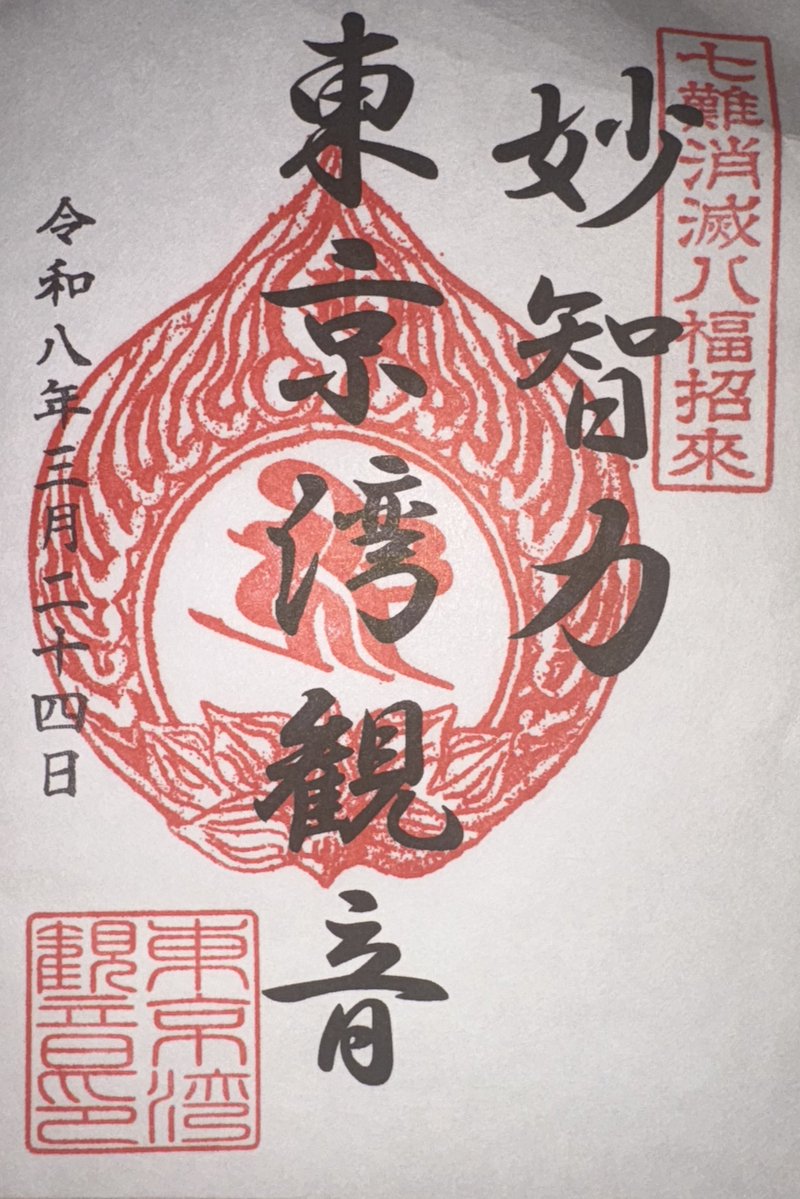 七難消滅八福招來
妙智力
東京湾観音
令和八年三月二十四日
東京湾
観音印